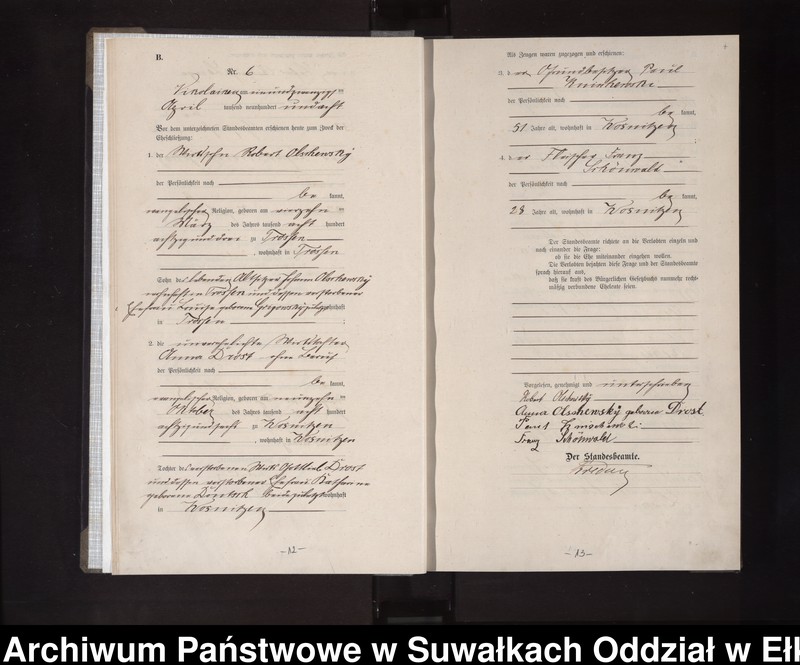 B.
Nr. 6
Nikolaiken am neunundzwanzigsten
April tausend neunhundert und acht
Vor dem unterzeichneten Standesbeamten erschienen heute zum Zweck der
Eheschließung:
1. der Wirtssohn Robert Olschewsky
der Persönlichkeit nach
be kannt,
evangelischer Religion, geboren am vierzehn
März des Jahres tausend acht hundert
achtzig und drei zu Trossen
, wohnhaft in Trossen
Sohn des lebenden Altsitzer Johann Olschewsky
wohnhaft in Trossen und dessen verstorbener
Ehefrau Louise geborene zuletzt wohnhaft
in Trossen
2. die unverehelichte Wirtstochter
Anna Drost ohne Beruf
der Persönlichkeit nach
be kannt,
evangelischer Religion, geboren am neunzehn
Oktober des Jahres tausend acht hundert
achtzig und sechs zu Wosnitzen
, wohnhaft in Wosnitzen
Tochter des verstorbenen Wirth Gottlieb Drost
und dessen verstorbener Ehefrau Katharine
geborene beide zuletzt wohnhaft
in Wosnitzen
-12-
Als Zeugen waren zugezogen und erschienen:
3. der Grundbesitzer Paul
der Persönlichkeit nach
be kannt,
51 Jahre alt, wohnhaft in Wosnitzen
4. der Fleischer Franz
Schönwald
der Persönlichkeit nach
be kannt,
28 Jahre alt, wohnhaft in Wosnitzen
Der Standesbeamte richtete an die Verlobten einzeln und
nach einander die Frage:
ob sie die Ehe miteinander eingehen wollen.
Die Verlobten bejahten diese Frage und der Standesbeamte
sprach hierauf aus,
daß sie kraft des Bürgerlichen Gesetzbuchs nunmehr recht-
mäßig verbundene Eheleute seien.
Vorgelesen, genehmigt und unterschrieben
Robert Olschewsky
Anna Olschewsky geborene Drost
Paul
Franz Schönwald
Der Standesbeamte.
-13-
Archiwum Państwowe w Suwałkach Oddział w Ełk